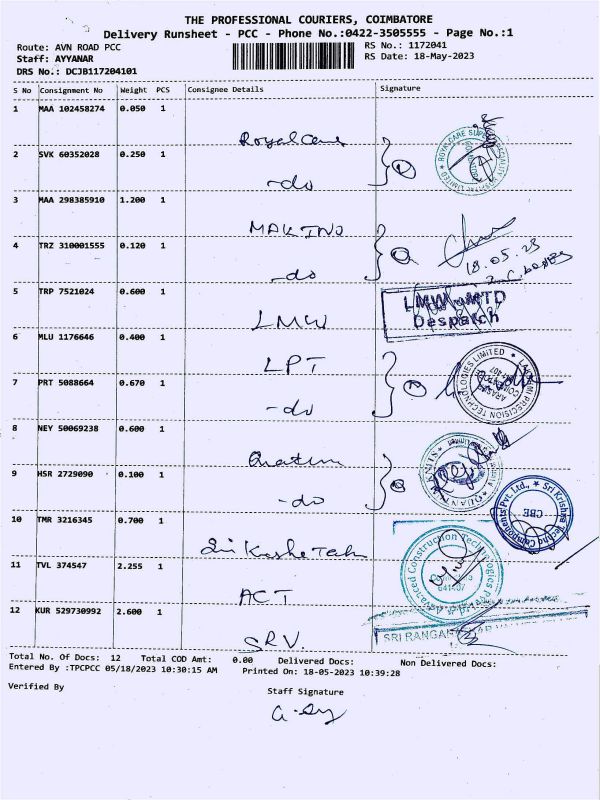 THE PROFESSIONAL COURIERS, COIMBATORE
Delivery Runsheet - PCC - Phone No.:0422-3505555 - Page No.:1
Route: AVN ROAD PCC
RS No.: 1172041
Staff: AYYANAR
RS Date: 18-May-2023
DRS No.: DCJB117204101
S No Consignment No Weight PCS Consignee Details Signature
1 MAA 102458274 0.050 1
Royal Care
2 SVK 60352028 0.250 1
-do
3 MAA 298385910 1.200 1
MAKINO
4 TRZ 310001555 0.120 1
-do
18.05.23
5 TRP 7521024 0.600 1
LMW
LMW MTD
Despatch
6 MLU 1176646 0.400 1
LPT
7 PRT 5088664 0.670 1
-do
LAKSHMI PRECISION TECHNOLOGIES LIMITED
8 NEY 50069238 0.600 1
9 HSR 2729090 0.100 1
-do
Sri Krishna Techno Components Pvt. Ltd., CBE
10 TMR 3216345 0.700 1
11 TVL 374547 2.255 1
ACT
Advanced Construction Technologies
12 KUR 529730992 2.600 1
SRV.
Total No. Of Docs: 12 Total COD Amt: 0.00 Delivered Docs: Non Delivered Docs:
Entered By :TPCPCC 05/18/2023 10:30:15 AM Printed On: 18-05-2023 10:39:28
Verified By
Staff Signature